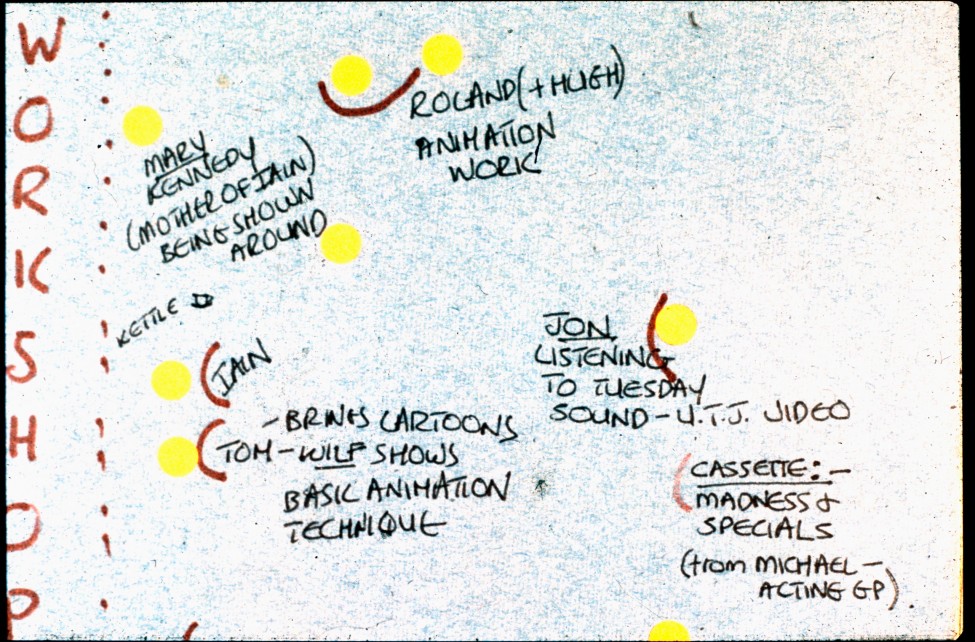 WORKSHOP
ROLAND (+ HUGH)
ANIMATION
WORK!
MARY
KENNEDY
(MOTHER OF IAIN)
BEING SHOWN
AROUND
KETTLE
IAIN
- BRINGS CARTOONS
TOM - WILF SHOWS
BASIC ANIMATION
TECHNIQUE
JON
LISTENING
TO TUESDAY
SOUND - U.T.J. VIDEO
CASSETTE: -
MADNESS &
SPECIALS
(from MICHAEL -
ACTING GP)